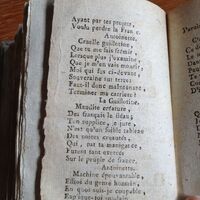 Ayant par ses projets,
Voulu perdre la Fran e.
Antoinette.
Cruelle guillotine,
Que tu me fais frémir,
Lorsque plus j'examine,
Que je m'en vais mourir,
Moi qui fus ci-devant,
Souveraine sur terre
Faut-il donc maintenant,
Terminer ma carriere?
La Guillotine.
Maudite créature,
Des français le fléau,
Ton supplice, je jure,
N'est qu'un foible tableau
Des noires cruautés,
Qui, par ta manigance
Furent tant exercés
Sur le peuple de france.
Antoinette.
Machine épouvantable,
Effroi du genre humain,
En quoi suis-je coupable,